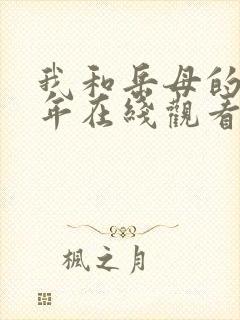 我和岳母的
年在綫觀看
楓之月